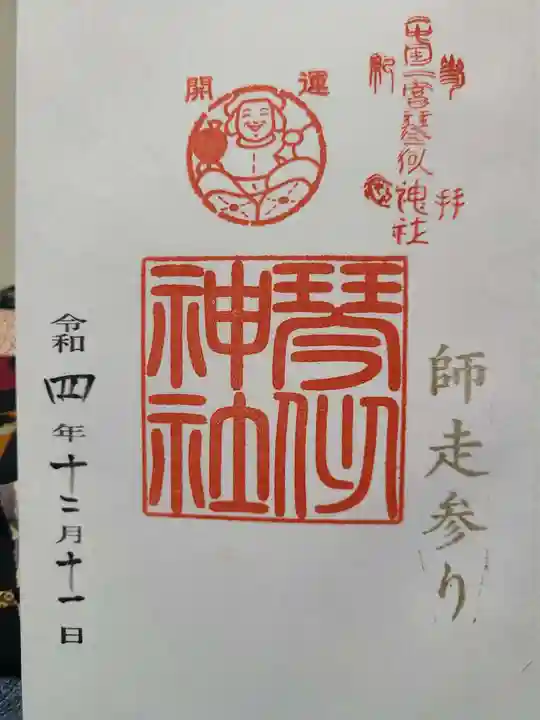 奉拝
一宮琴似神社
師走参り
開運
琴似
神社
令和四年十二月十一日